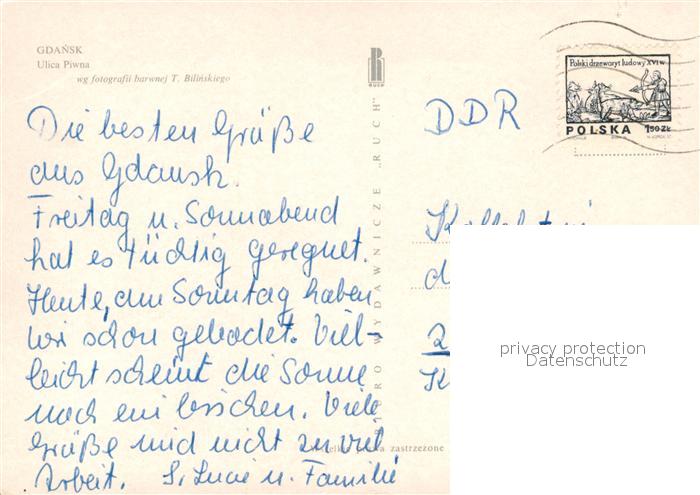 GDAŃSK
Ulica Piwna
wg fotografii barwnej T. Bilińskiego
RUCH
Die besten Grüße
aus Gdansk.
Freitag u. Sonnabend
hat es tüchtig geregnet.
Heute, am Sonntag haben
wir schon gebadet. Viel-
leicht scheint die Sonne
noch ein bisschen. Viele
Grüße und nicht zu viel
Arbeit. S. Lucie u. Familie
BIURO WYDAWNICZE „RUCH"
prawa zastrzeżone
Polski drzeworyt ludowy XVI w.
POLSKA 1,50 ZŁ
DDR
d
2
K
privacy protection
Datenschutz